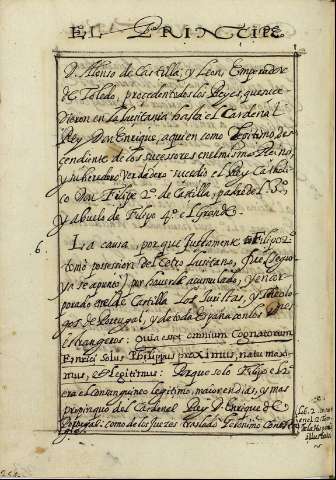 EL PRINCIPE
D. Alonso de Castilla, y Leon, Emperador
de Toledo, procedentodos los Reyes, que suce
dieron en la Lusitania hasta el Cardenal
Rey Don Enrique, aquien como Legitimo, des
cendiente de los sucesores en el mismo Reino,
y su heredero verdadero sucedio el Rey Catholi
co Don Filipe 2º de Castilla, padre del 3º,
y abuelo de Filipo 4º el grande.
6. La causa, porque Justamente Filipo 2º
tomò possession del Cetro Lusitano,
ya se apuntò) por haverle acumulado, y encor
porado en el de Castilla Los Juristas, y Theolo
gos de Portugal, y de toda España con los
estrangeros: quia est omnium Cognatorum
Enrici solus Philippus proximus, natu maxi
mus, et Legitimus: Porque solo Filipo el 2º
era el consanguineo legitimo, maior en dias, y mas
propinquo del Cardenal Rey D. Enrique de
Portugal: como de los Juezes traslado Geronimo
Lib. 2.